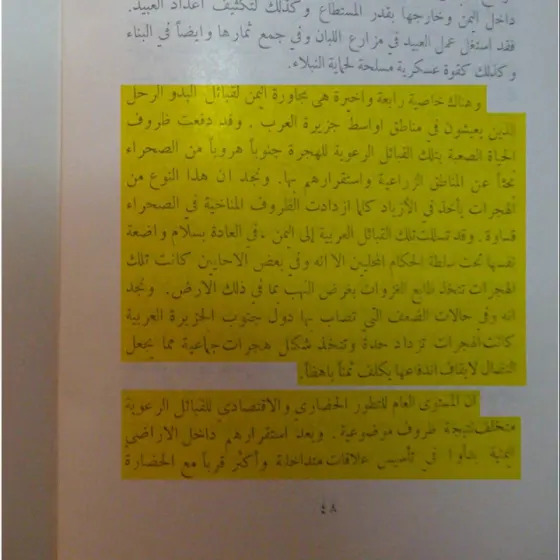 داخل اليمن وخارجها بقدر المستطاع وكذلك لتكثيف اعداد العبيد.
فقد استغل عمل العبيد في مزارع اللبان وفي جمع ثمارها وايضاً في البناء
وكذلك كقوة عسكرية مسلحة لحماية النبلاء.
وهناك خاصية رابعة واخيرة هي مجاورة اليمن لقبائل البدو الرحل
الذين يعيشون في مناطق اواسط جزيرة العرب . وقد دفعت ظروف
الحياة الصعبة بتلك القبائل الرعوية للهجرة جنوباً هروباً من الصحراء
بحثاً عن المناطق الزراعية واستقرارهم بها. ونجد ان هذا النوع من
الهجرات يأخذ في الأزياد كلما ازدادت الظروف المناخية في الصحراء
قساوة . وقد تسللت تلك القبائل العربية إلى اليمن ، في العادة بسلام واضعة
نفسها تحت سلطة الحكام المحليين الا انه وفي بعض الاحايين كانت تلك
الهجرات تتخذ طابع الغزوات بغرض النهب بما في ذلك الارض. ونجد
انه وفي حالات الضعف التي تصاب بها دول جنوب الجزيرة العربية
كانت الهجرات تزداد حدة وتتخذ شكل هجرات جماعية مما يجعل
النضال لايقاف اندفاعها يكلف ثمناً باهضاً.
ان المستوى العام للتطور الحضاري والاقتصادي للقبائل الرعوية
متخلف نتيجة ظروف موضوعية . وبعد استقرارهم داخل الاراضي
اليمنية بدأوا في تأسيس علاقات متداخلة وأكثر قرباً مع الحضارة
٤٨